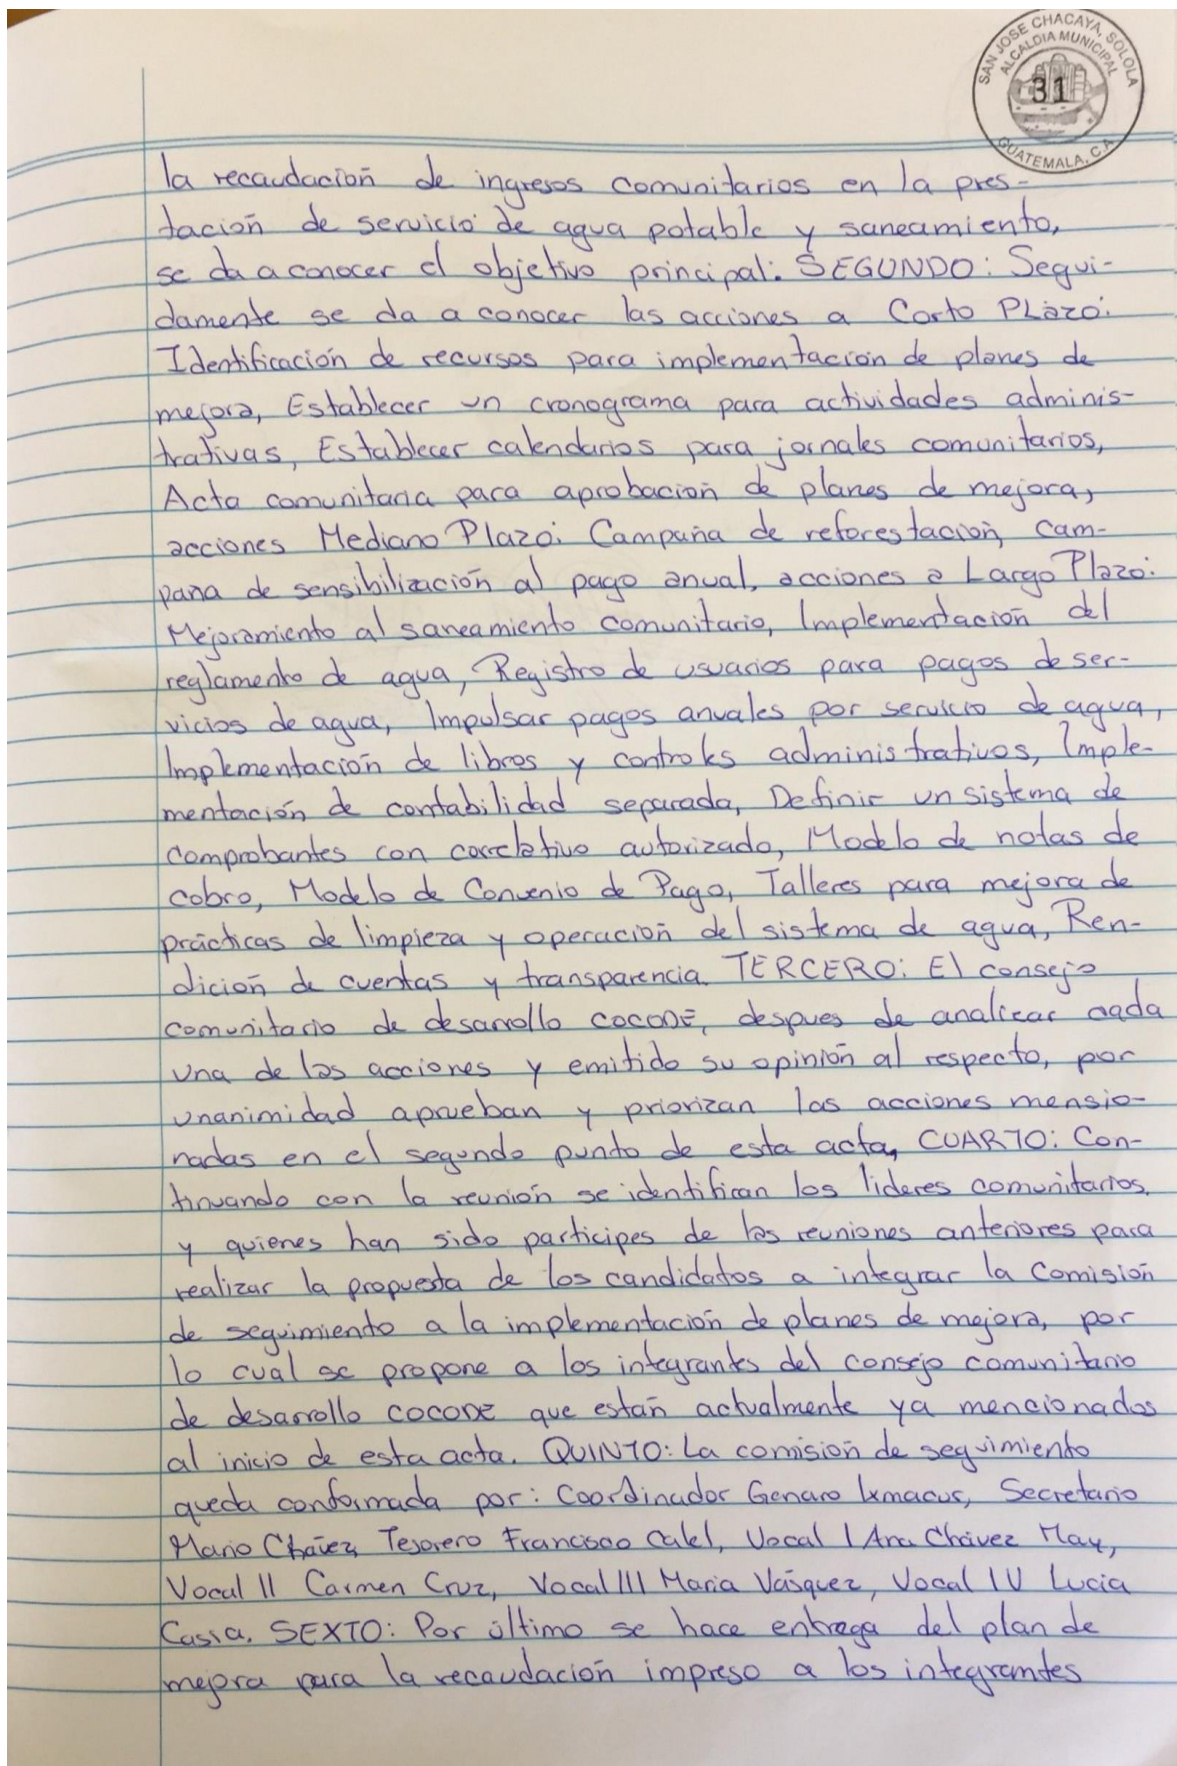 SAN JOSE CHACAYA, SOLOLA
ALCALDIA MUNICIPAL
31
GUATEMALA, C.A.
la recaudación de ingresos comunitarios en la pres-
tación de servicio de agua potable y saneamiento,
se da a conocer el objetivo principal. SEGUNDO: Segui-
damente se da a conocer las acciones a Corto Plazo:
Identificación de recursos para implementación de planes de
mejora, Establecer un cronograma para actividades adminis-
trativas, Establecer calendarios para jornales comunitarios,
Acta comunitaria para aprobación de planes de mejora,
acciones Mediano Plazo: Campaña de reforestación, cam-
paña de sensibilización al pago anual, acciones a Largo Plazo:
Mejoramiento al saneamiento comunitario, Implementación del
reglamento de agua, Registro de usuarios para pagos de ser-
vicios de agua, Impulsar pagos anuales por servicio de agua,
Implementación de libros y controles administrativos, Imple-
mentación de contabilidad separada, Definir un sistema de
comprobantes con correlativo autorizado, Modelo de notas de
cobro, Modelo de Convenio de Pago, Talleres para mejora de
prácticas de limpieza y operación del sistema de agua, Ren-
dición de cuentas y transparencia. TERCERO: El consejo
comunitario de desarrollo COCODE, despues de analizar cada
una de las acciones y emitido su opinión al respecto, por
unanimidad aprueban y priorizan las acciones mensio-
nadas en el segundo punto de esta acta, CUARTO: Con-
tinuando con la reunión se identifican los lideres comunitarios,
y quienes han sido participes de las reuniones anteriores para
realizar la propuesta de los candidatos a integrar la Comisión
de seguimiento a la implementación de planes de mejora, por
lo cual se propone a los integrantes del consejo comunitario
de desarrollo COCODE que están actualmente ya mencionados
al inicio de esta acta. QUINTO: La comisión de seguimiento
queda conformada por: Coordinador Genaro Ixmacus, Secretario
Mario Chávez, Tesorero Francisco Calel, Vocal I Ana Chávez May,
Vocal II Carmen Cruz, Vocal III Maria Vásquez, Vocal IV Lucia
Casia. SEXTO: Por último se hace entrega del plan de
mejora para la recaudación impreso a los integrantes